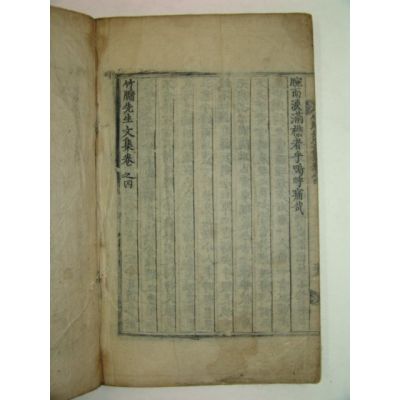 腕而淚滿襟者乎嗚呼痛哉
竹牖先生文集卷之四